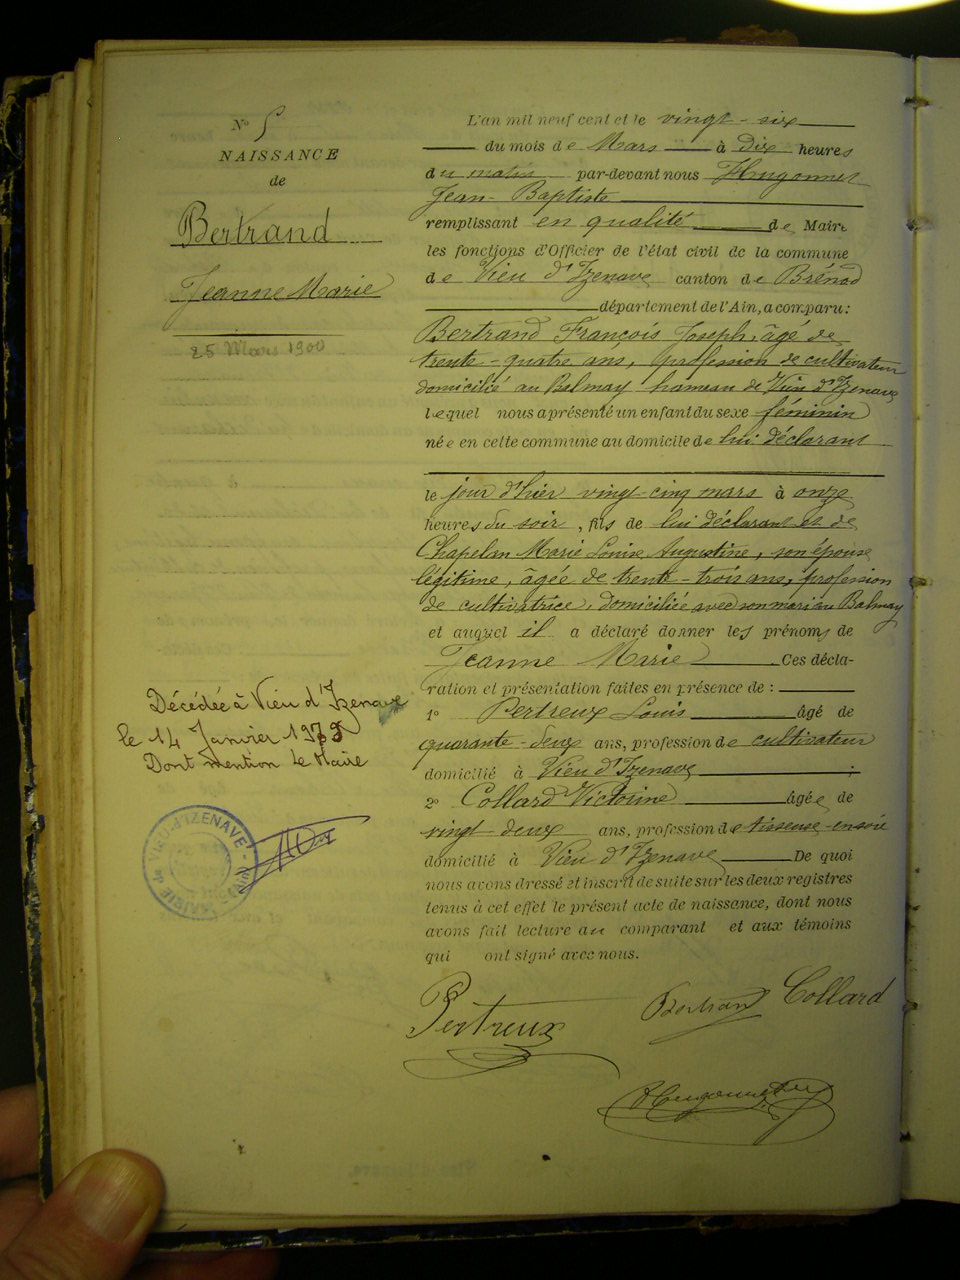 N° 5
NAISSANCE
de
Bertrand
Jeanne Marie
25 Mars 1900
Décédée à Vieu d'Izenave
le 14 Janvier
Dont mention Le Maire
MAIRIE de VIEU-D'IZENAVE (Ain)
L'an mil neuf cent et le vingt-six
du mois de Mars à dix heures
du matin par-devant nous Hugonnet
Jean-Baptiste
remplissant en qualité de Maire
les fonctions d'Officier de l'état civil de la commune
de Vieu d'Izenave canton de Brénod
département de l'Ain, a comparu :
Bertrand François Joseph, âgé de
trente-quatre ans, profession de cultivateur
domicilié au Balmay hameau de Vieu d'Izenave
lequel nous a présenté un enfant du sexe féminin
née en cette commune au domicile de lui déclarant
le jour d'hier vingt-cinq mars à onze
heures du soir, fils de lui déclarant et de
Chapelan Marie Louise Augustine, son épouse
légitime, âgée de trente-trois ans, profession
de cultivatrice, domiciliée avec son mari au Balmay
et auquel il a déclaré donner les prénoms de
Jeanne Marie Ces décla-
ration et présentation faites en présence de :
1° Pertreux Louis âgé de
quarante-deux ans, profession de cultivateur
domicilié à Vieu d'Izenave ;
2° Collard Victorine âgée de
vingt-deux ans, profession de tisseuse en soie
domicilié à Vieu d'Izenave De quoi
nous avons dressé et inscrit de suite sur les deux registres
tenus à cet effet le présent acte de naissance, dont nous
avons fait lecture au comparant et aux témoins
qui ont signé avec nous.
Pertreux Bertrand Collard
Hugonnet